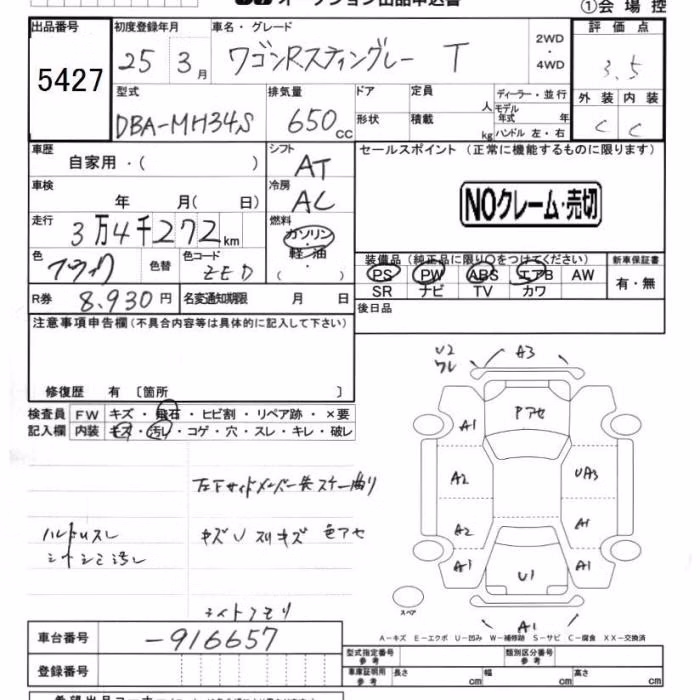 オークション出品申込書
①会場控
出品番号 初度登録年月 車名・グレード 2WD・4WD 評価点
5427 25 3月 ワゴンRスティングレー T 3.5
型式 排気量 ドア 定員 人 ディーラー・並行 外装 内装
DBA-MH34S 650cc 形状 積載 kg モデル年式 年 ハンドル 左・右 C C
車歴 シフト セールスポイント (正常に機能するものに限ります)
自家用・( ) AT
車検 冷房
年 月( 日) AC
NOクレーム・売切
走行 燃料
3万4千272km ガソリン・軽油 ( )
色 色替 色コード 装備品 (純正品に限り○をつけてください) 新車保証書
ブラック ZED PS PW ABS エアB AW 有・無
SR ナビ TV カワ
R券 8.930円 名変通知期限 月 日 後日品
注意事項申告欄(不具合内容等は具体的に記入して下さい)
修復歴 有 〔箇所 〕
検査員記入欄 FW キズ・飛石・ヒビ割・リペア跡・×要
内装 キズ・汚レ・コゲ・穴・スレ・キレ・破レ
左下サイドメンバー先スケー曲り
ハンドルスレ キズU スリキズ 色アセ
シートシミ汚レ
U2 A3
ワレ
A1 Pアセ
A2 UA3
A2 A1
A1 U1 A1
スペア
A1
A-キズ E-エクボ U-凹み W-補修跡 S-サビ C-腐食 XX-交換済
車台番号 -916657
型式指定番号 参考 類別区分番号 参考
登録番号 車庫証明用 参考 長さ cm 幅 cm 高さ cm